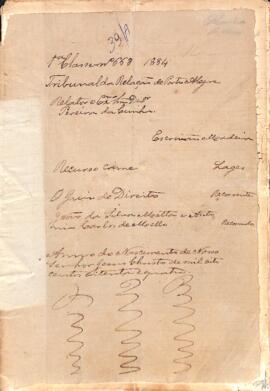 1ª Classe nº 668 1884
Tribunal da Relação de Porto Alegre
Relator o Exmo Snr Dr
Pereira da Cunha
Escrivão Madeira
Recurso crime Lages
O Juiz de Direito Recorrente
João da Silva Mattos e Anto
nio Carlos de Mello Recorrido
Anno do Nascimento de Nosso
Senhor Jesus Christo de mil oito
centos oitenta e quatro